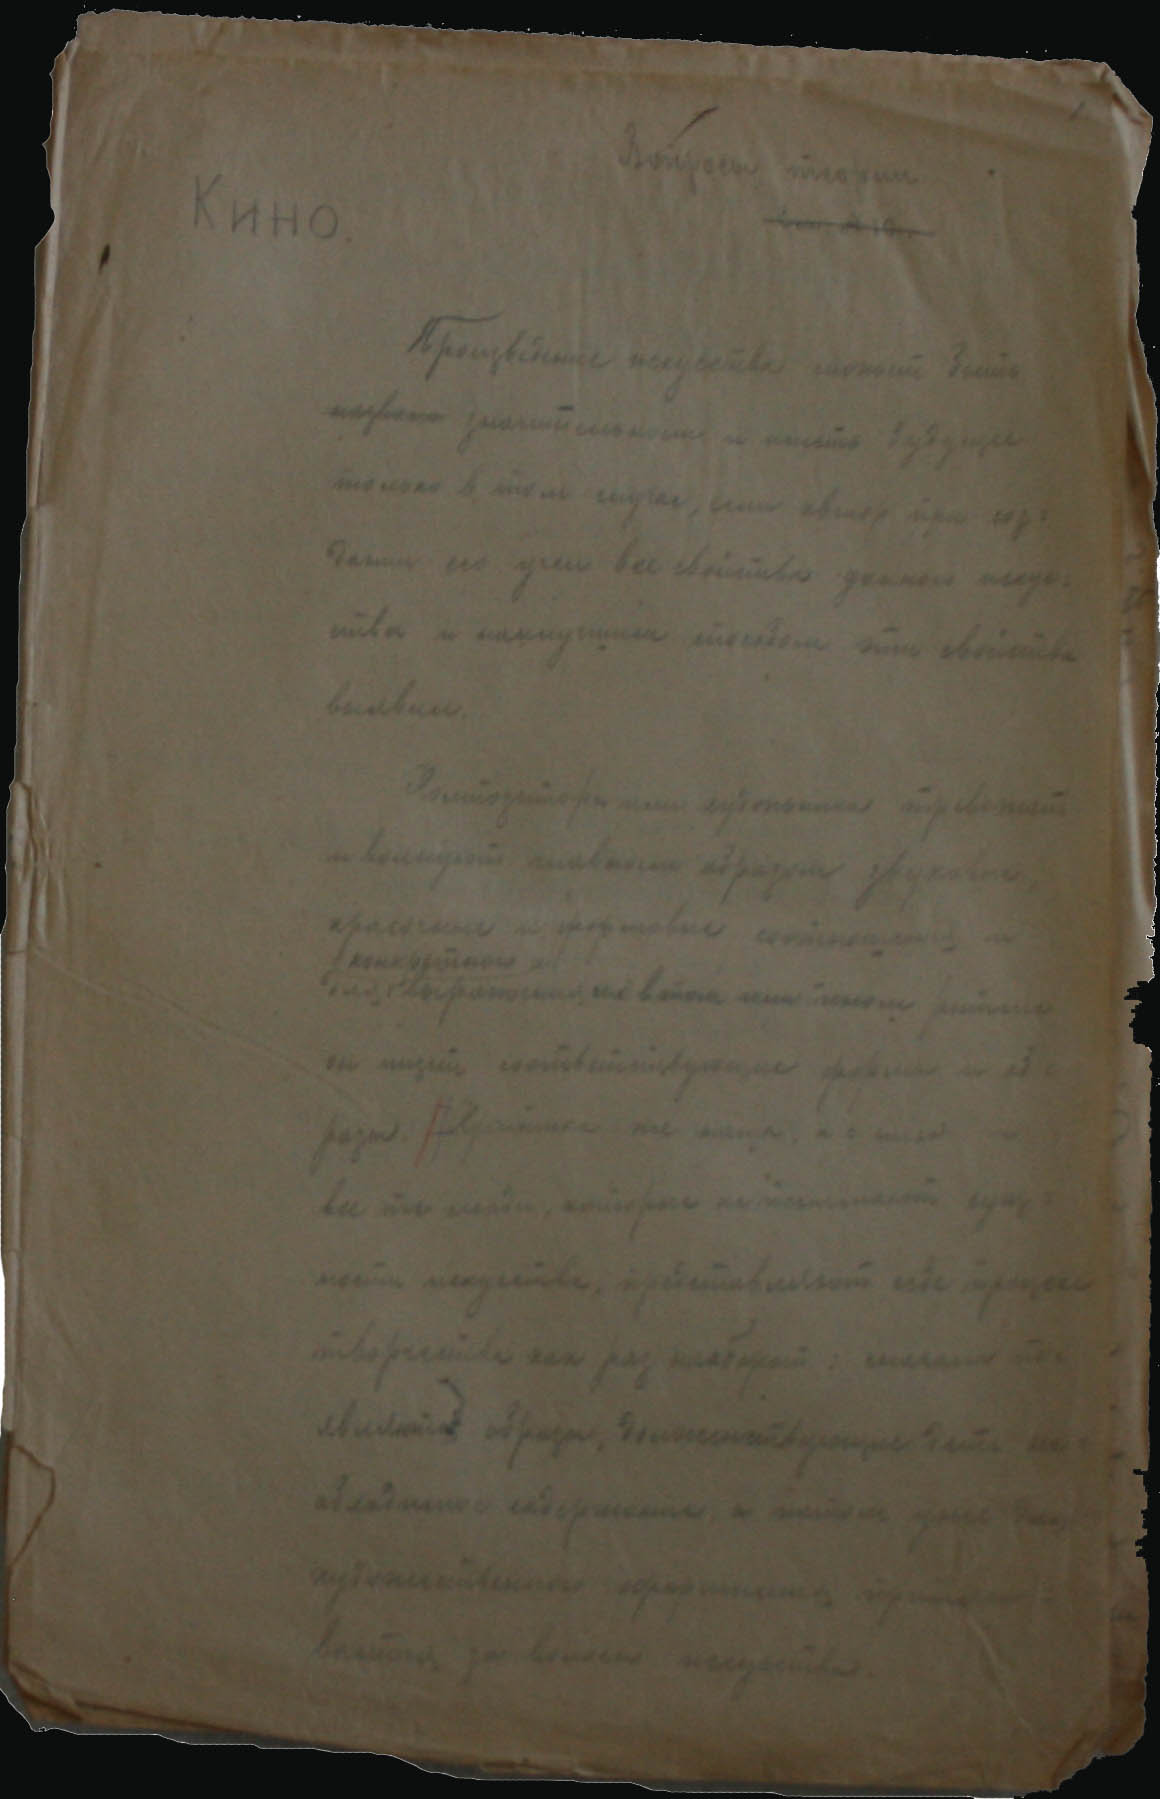 Вопросы теории
Кино.
Произведение искусства может быть
названо значительным и иметь будущее
только в том случае, если автор при соз-
дании его учел все свойства данного искус-
ства и наилучшим способом эти свойства
выявил.
Композитора или художника тревожат
и волнуют главным образом звуковые,
красочные и формовые соотношения и
конкретного
для выражения их в том или ином ритме
он ищет соответствующие формы и об-
разы. Критика же наша, а с ней и
все те люди, которые не понимают сущ-
ности искусства, представляют себе процесс
творчества как раз наоборот: сначала по-
являются образы, долженствующие дать не-
обходимое содержание, а потом уже для
художественного оформления притяги-
ваются за волосы искусства.